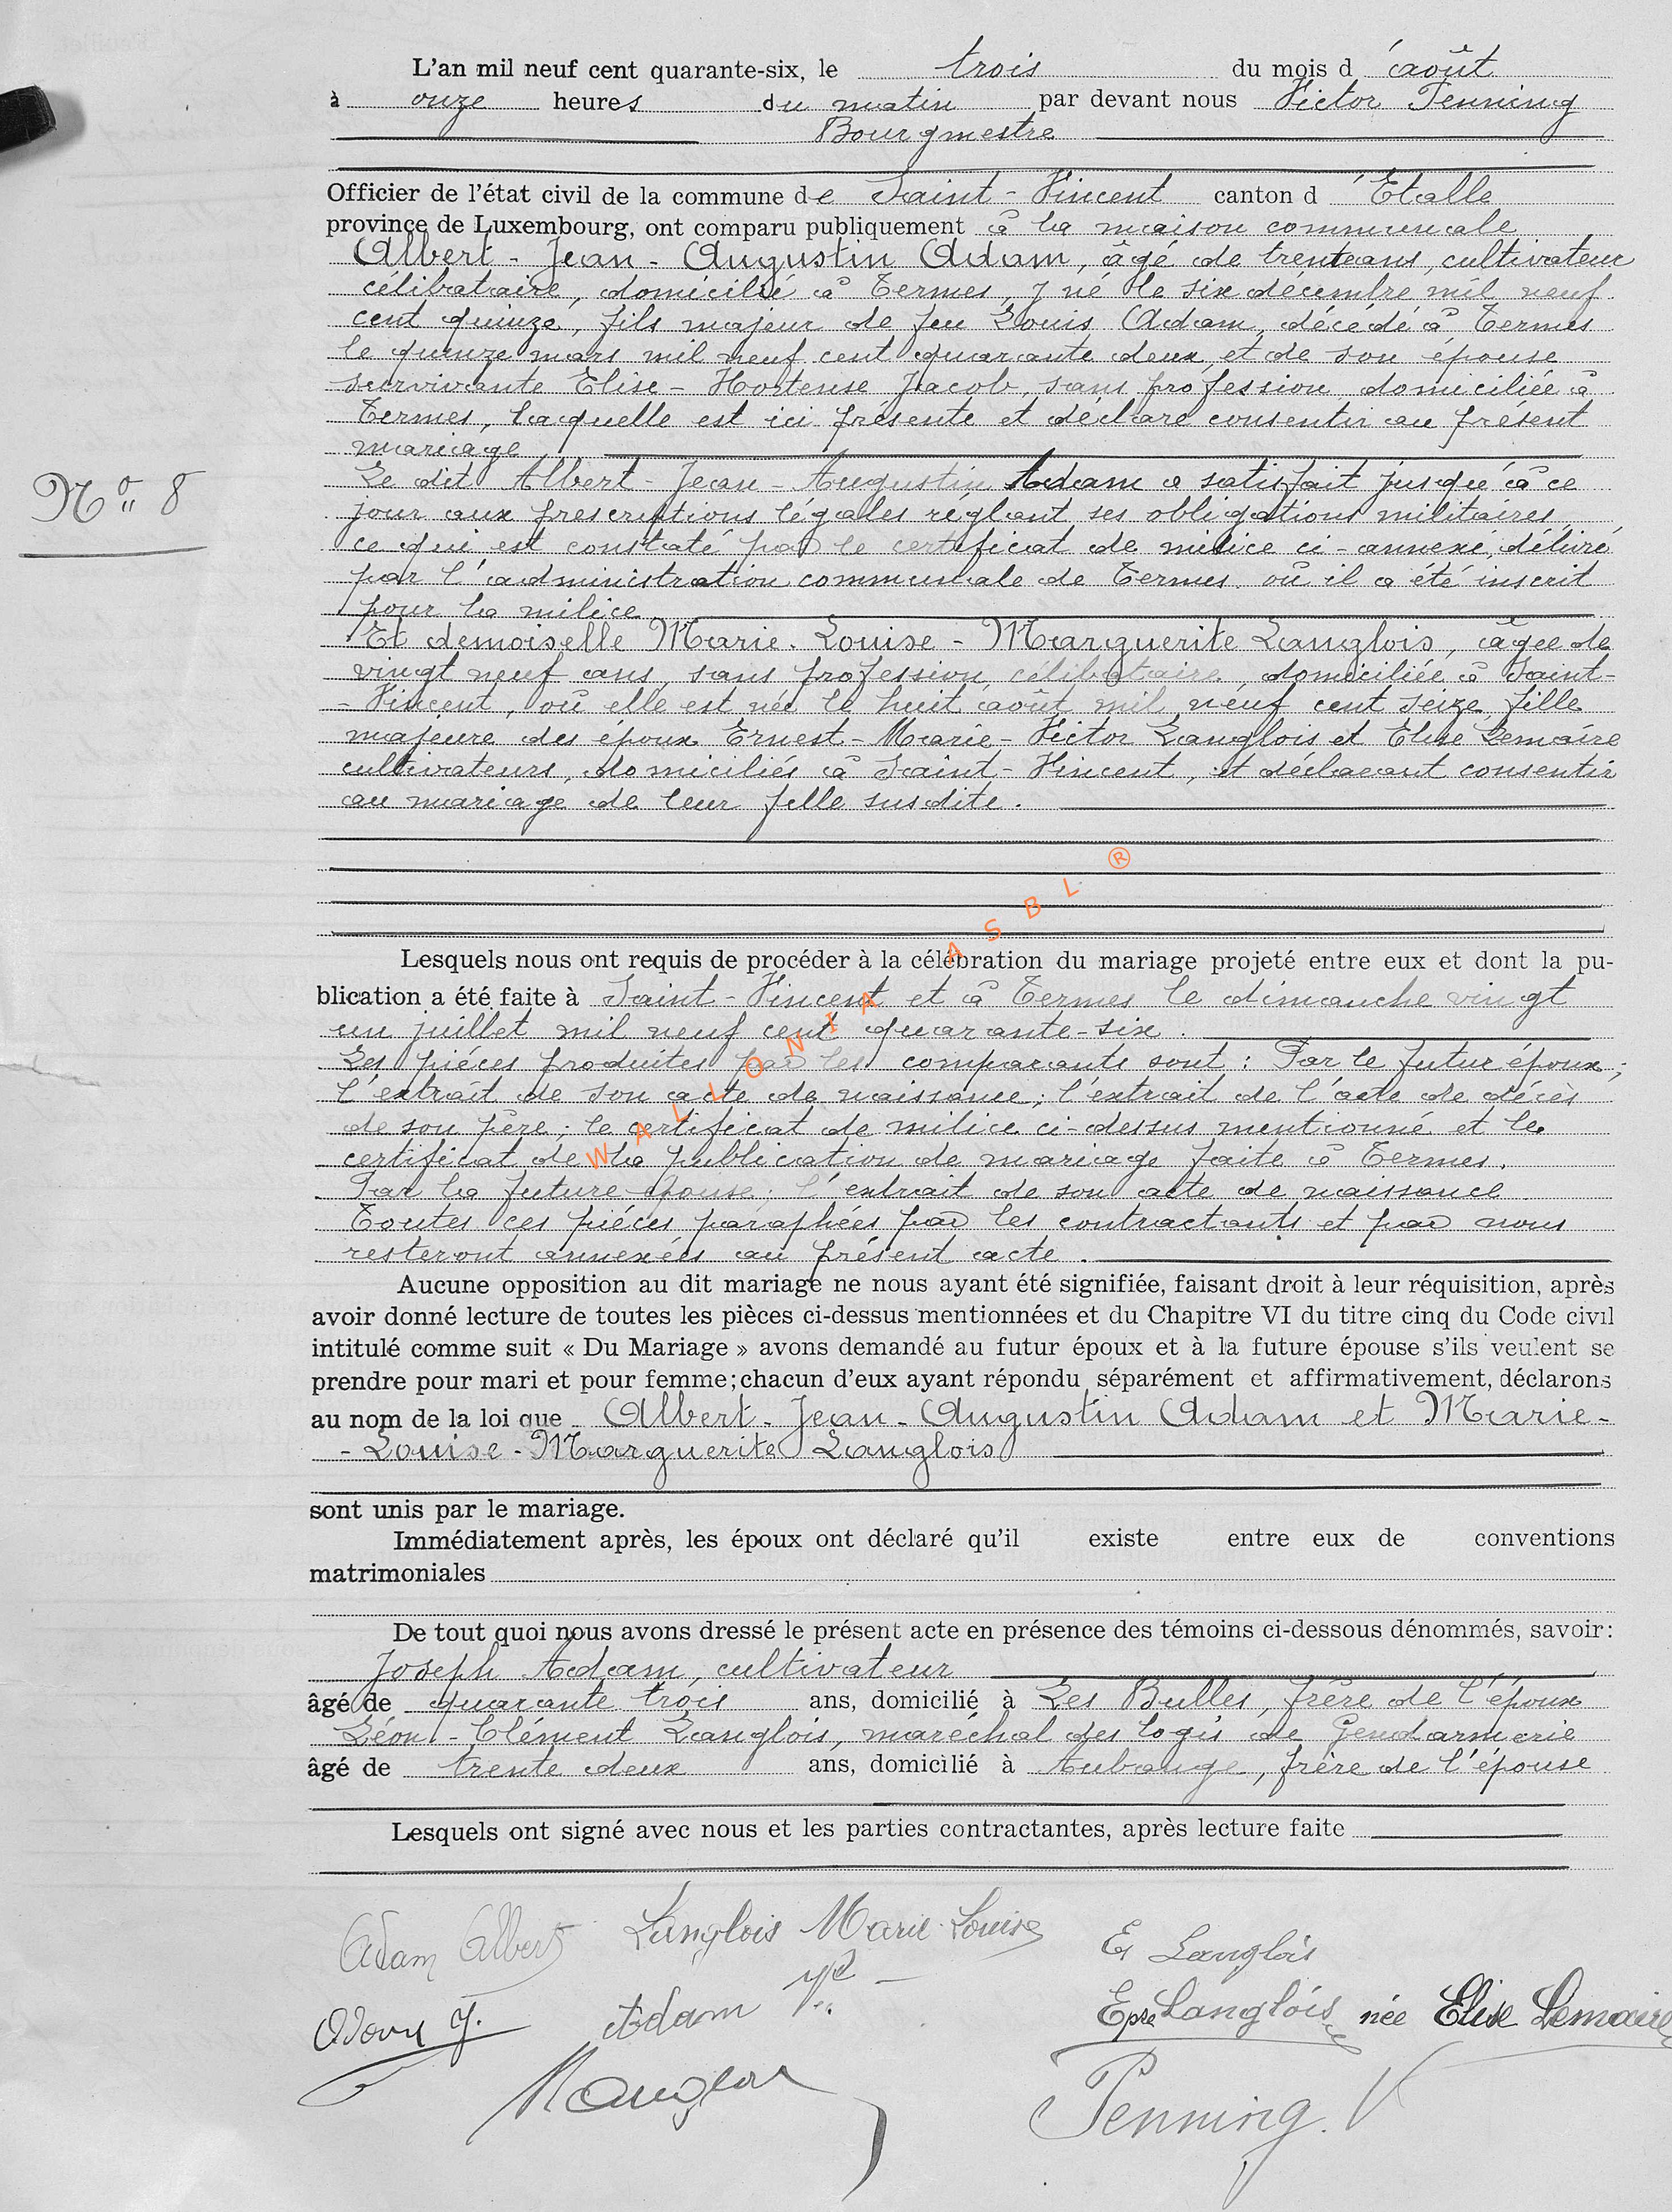 L'an mil neuf cent quarante-six, le trois du mois d'août
à onze heures du matin par devant nous Victor Penning
Bourgmestre
Officier de l'état civil de la commune de Saint-Vincent canton d'Etalle
province de Luxembourg, ont comparu publiquement à la maison communale
Albert-Jean-Augustin Adam, âgé de trente ans, cultivateur
célibataire, domicilié à Termes, y né le six décembre mil neuf
cent quinze, fils majeur de feu Louis Adam, décédé à Termes
le quinze mars mil neuf cent quarante deux, et de son épouse
survivante Elise-Hortense Jacob, sans profession, domiciliée à
Termes, laquelle est ici présente et déclare consentir au présent
mariage
Le dit Albert-Jean-Augustin Adam a satisfait jusqu'à ce
jour aux prescriptions légales réglant ses obligations militaires,
ce qui est constaté par le certificat de milice ci-annexé, délivré
par l'administration communale de Termes où il a été inscrit
pour la milice
N° 8
Et demoiselle Marie-Louise-Marguerite Langlois, âgée de
vingt neuf ans, sans profession, célibataire, domiciliée à Saint-
-Vincent, où elle est née le huit août mil neuf cent seize, fille
majeure des époux Ernest-Marie-Victor Langlois et Elise Lemaire
cultivateurs, domiciliés à Saint-Vincent, et déclarant consentir
au mariage de leur fille susdite.
Lesquels nous ont requis de procéder à la célébration du mariage projeté entre eux et dont la pu-
blication a été faite à Saint-Vincent et à Termes le dimanche vingt
un juillet mil neuf cent quarante-six.
Les pièces produites par les comparants sont : Par le futur époux ;
l'extrait de son acte de naissance ; l'extrait de l'acte de décès
de son père ; le certificat de milice ci-dessus mentionné et le
certificat de la publication de mariage faite à Termes.
Par la future épouse : l'extrait de son acte de naissance.
Toutes ces pièces paraphées par les contractants et par nous
resteront annexées au présent acte.
WALLONIA ASBL ®
Aucune opposition au dit mariage ne nous ayant été signifiée, faisant droit à leur réquisition, après
avoir donné lecture de toutes les pièces ci-dessus mentionnées et du Chapitre VI du titre cinq du Code civil
intitulé comme suit « Du Mariage » avons demandé au futur époux et à la future épouse s'ils veulent se
prendre pour mari et pour femme; chacun d'eux ayant répondu séparément et affirmativement, déclarons
au nom de la loi que Albert-Jean-Augustin Adam et Marie-
-Louise-Marguerite Langlois
sont unis par le mariage.
Immédiatement après, les époux ont déclaré qu'il existe entre eux de conventions
matrimoniales
De tout quoi nous avons dressé le présent acte en présence des témoins ci-dessous dénommés, savoir:
Joseph Adam, cultivateur
âgé de quarante trois ans, domicilié à Les Bulles, frère de l'époux
Léon-Clément Langlois, maréchal des logis de Gendarmerie
âgé de trente deux ans, domicilié à Aubange, frère de l'épouse
Lesquels ont signé avec nous et les parties contractantes, après lecture faite
Adam Albert Langlois Marie-Louise E Langlois
Adam J. Adam Epse Langlois née Elise Lemaire
Penning. V